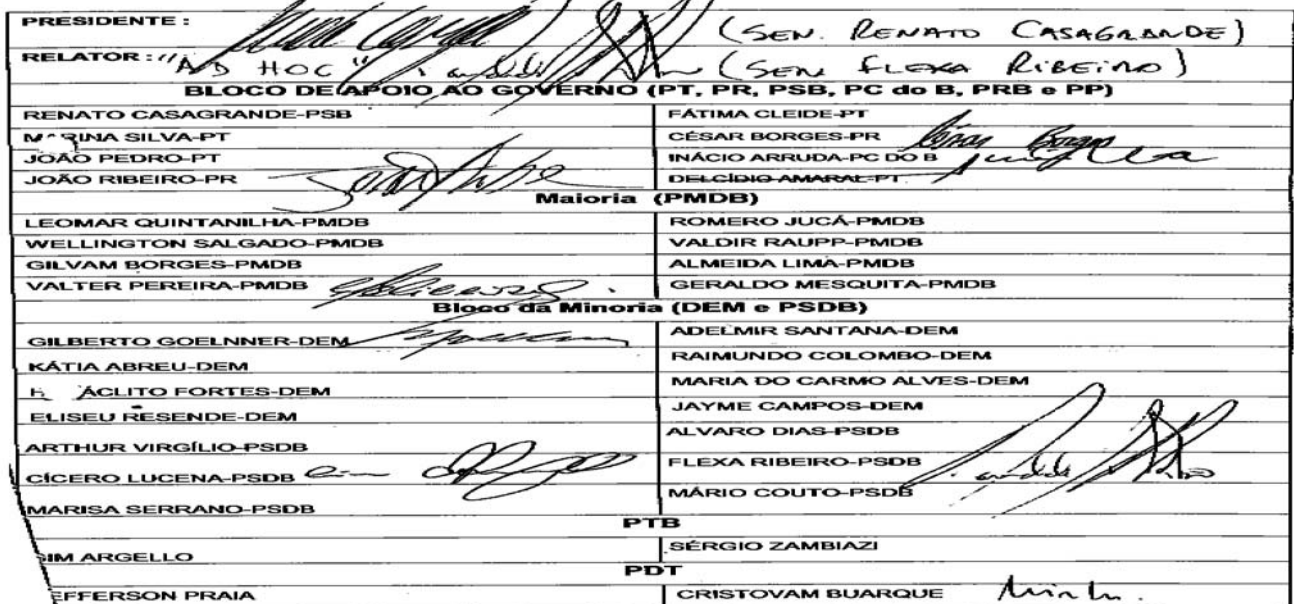 PRESIDENTE : (SEN. RENATO CASAGRANDE)
RELATOR : "AD HOC" (SEN FLEXA RIBEIRO)
BLOCO DE APOIO AO GOVERNO (PT, PR, PSB, PC do B, PRB e PP)
RENATO CASAGRANDE-PSB FÁTIMA CLEIDE-PT
M RINA SILVA-PT CÉSAR BORGES-PR César Borges
JOÃO PEDRO-PT INÁCIO ARRUDA-PC DO B
JOÃO RIBEIRO-PR DELCÍDIO AMARAL-PT
Maioria (PMDB)
LEOMAR QUINTANILHA-PMDB ROMERO JUCÁ-PMDB
WELLINGTON SALGADO-PMDB VALDIR RAUPP-PMDB
GILVAM BORGES-PMDB ALMEIDA LIMA-PMDB
VALTER PEREIRA-PMDB GERALDO MESQUITA-PMDB
Bloco da Minoria (DEM e PSDB)
GILBERTO GOELNNER-DEM ADELMIR SANTANA-DEM
KÁTIA ABREU-DEM RAIMUNDO COLOMBO-DEM
H ÁCLITO FORTES-DEM MARIA DO CARMO ALVES-DEM
ELISEU RESENDE-DEM JAYME CAMPOS-DEM
ARTHUR VIRGÍLIO-PSDB ALVARO DIAS-PSDB
CÍCERO LUCENA-PSDB FLEXA RIBEIRO-PSDB
MARISA SERRANO-PSDB MÁRIO COUTO-PSDB
PTB
SIM ARGELLO SÉRGIO ZAMBIAZI
PDT
EFFERSON PRAIA CRISTOVAM BUARQUE